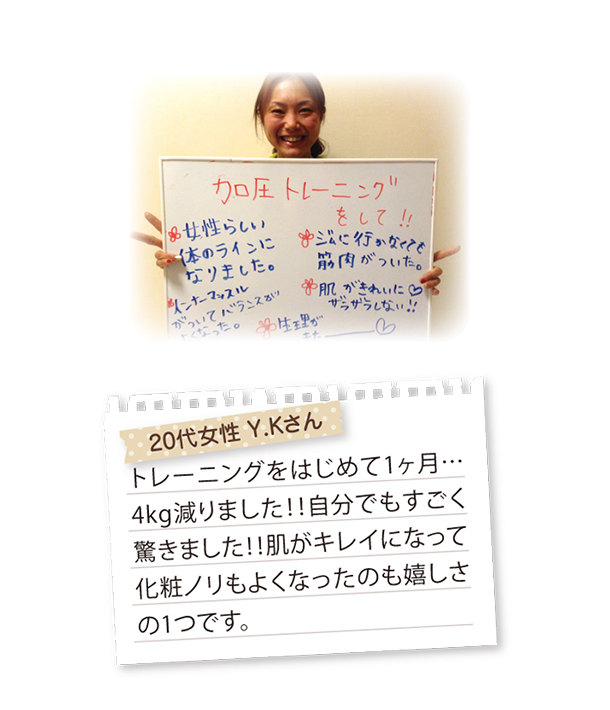 加圧トレーニング
をして!!
女性らしい
体のラインに
なりました。
インナーマッスル
がついてバランスが
よくなった。
ジムに行かなくても
筋肉がついた。
肌がきれいに♡
ザラザラしない!!
生理が
きた
20代女性 Y.Kさん
トレーニングをはじめて1ヶ月…
4kg減りました!!自分でもすごく
驚きました!!肌がキレイになって
化粧ノリもよくなったのも嬉しさ
の1つです。